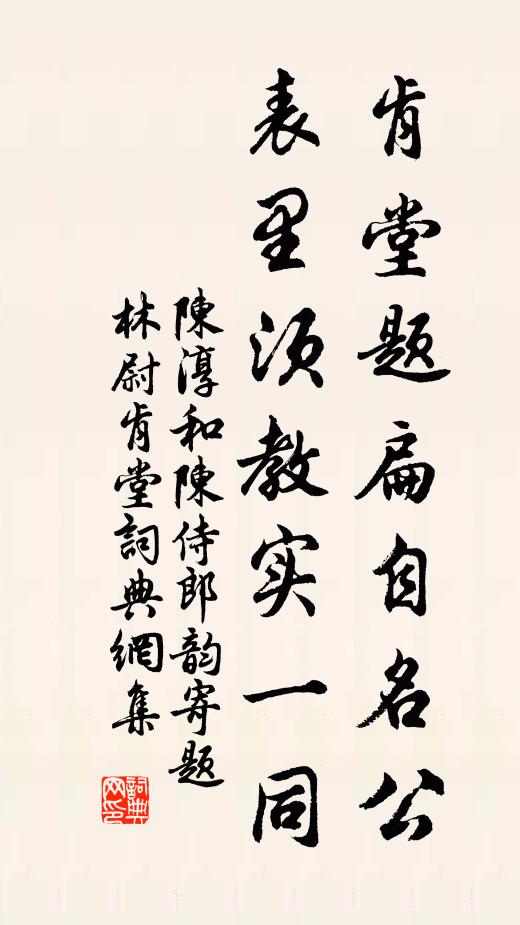 肯堂题扁自名公
表里须教实一同
陳淳和陳侍郎韵寄题
林尉肯堂詞典網集
詞典
网印